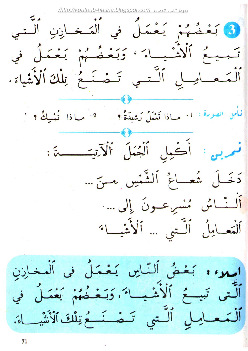 3 بَعْضُهُمْ يَعْمَلُ فِي الْمَخَازِنِ الَّتِي
تَبِيعُ الْأَشْيَاءَ، وَبَعْضُهُمْ يَعْمَلُ فِي
الْمَعَامِلِ الَّتِي تَصْنَعُ تِلْكَ الْأَشْيَاءَ.
١- ماذا تَفْعَلُ ٢- ماذا
تمرين: أَكْمِلِ الْجُمَلَ الْآتِيَةَ:
دَخَلَ شُعَاعُ الشَّمْسِ مِنْ ...
اَلنَّاسُ مُسْرِعُونَ إِلَى ...
اَلْمَعَامِلُ الَّتِي ... الْأَشْيَاءَ
إملاء: بَعْضُ النَّاسِ يَعْمَلُ فِي الْمَخَازِنِ
الَّتِي تَبِيعُ الْأَشْيَاءَ، وَبَعْضُهُمْ يَعْمَلُ فِي
الْمَعَامِلِ الَّتِي تَصْنَعُ تِلْكَ الْأَشْيَاءَ.